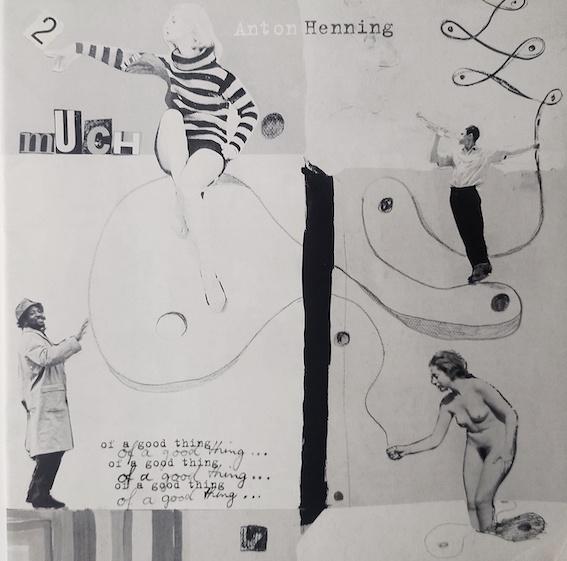 2
Anton Henning
mUCH
of a good thing,
of a good thing...
of a good thing,
of a good thing...
of a good thing
of a good thing...